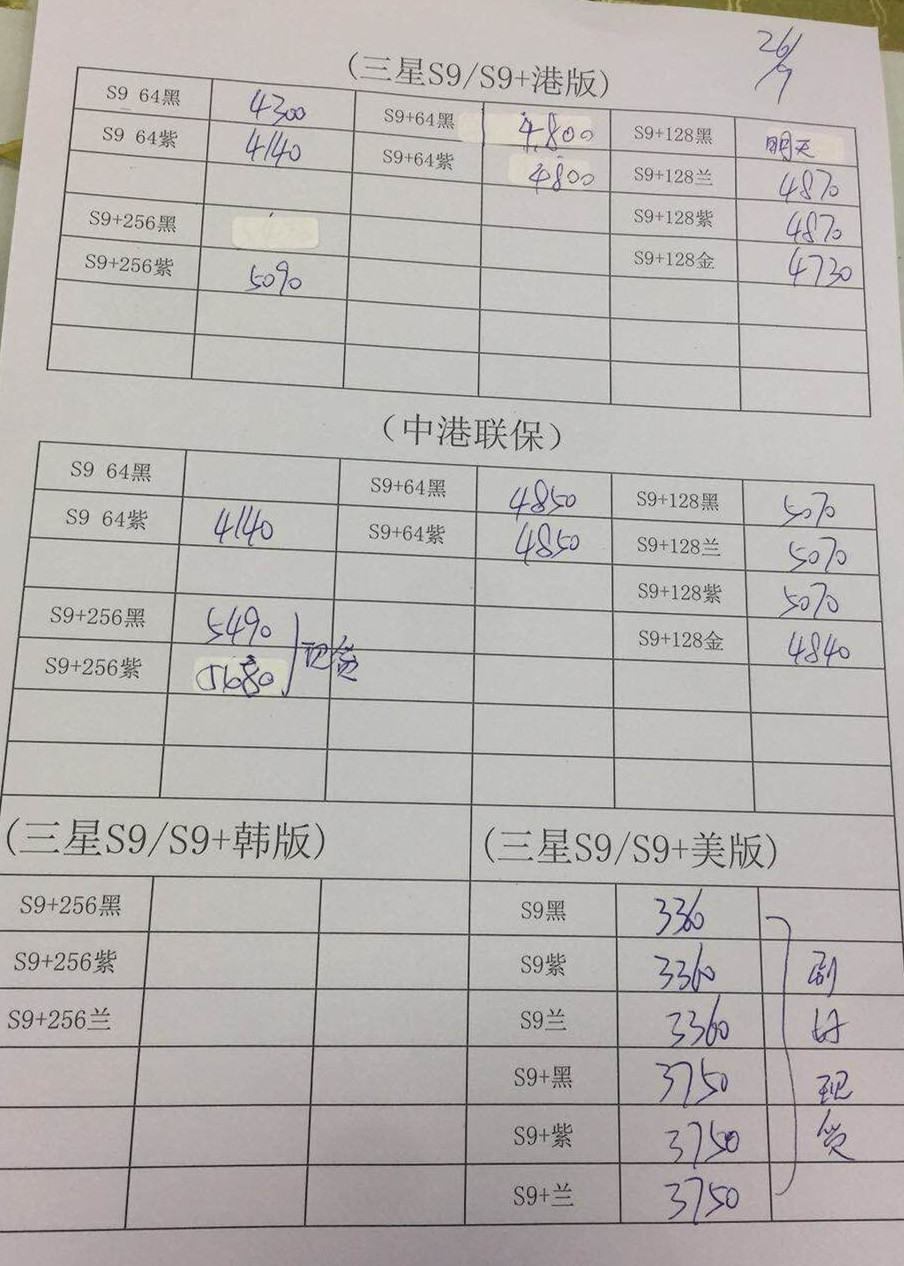 26/9
(三星S9/S9+港版)
S9 64黑 4300 S9+64黑 4,800 S9+128黑 明天
S9 64紫 4140 S9+64紫 4800 S9+128兰 4870
S9+128紫 4870
S9+256黑 S9+128金 4730
S9+256紫 5090
(中港联保)
S9 64黑 S9+64黑 4850 S9+128黑 5070
S9 64紫 4140 S9+64紫 4850 S9+128兰 5070
S9+128紫 5070
S9+256黑 5490 现货 S9+128金 4840
S9+256紫 5680
(三星S9/S9+韩版) (三星S9/S9+美版)
S9+256黑 S9黑 3360
S9+256紫 S9紫 3360
S9+256兰 S9兰 3360
S9+黑 3750 现
S9+紫 3750 货
S9+兰 3750